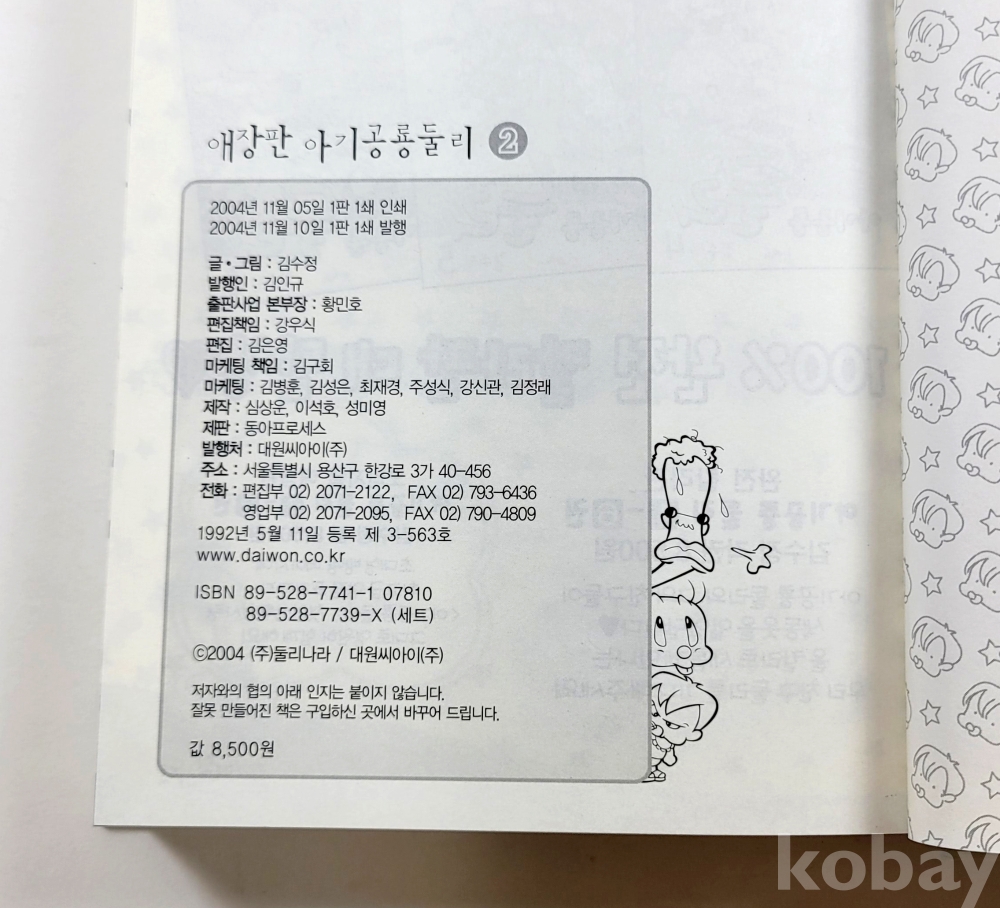 애장판 아기공룡둘리 2
2004년 11월 05일 1판 1쇄 인쇄
2004년 11월 10일 1판 1쇄 발행
글·그림 : 김수정
발행인 : 김인규
출판사업 본부장 : 황민호
편집책임 : 강우식
편집 : 김은영
마케팅 책임 : 김구회
마케팅 : 김병훈, 김성은, 최재경, 주성식, 강신관, 김정래
제작 : 심상운, 이석호, 성미영
제판 : 동아프로세스
발행처 : 대원씨아이(주)
주소 : 서울특별시 용산구 한강로 3가 40-456
전화 : 편집부 02) 2071-2122, FAX 02) 793-6436
영업부 02) 2071-2095, FAX 02) 790-4809
1992년 5월 11일 등록 제 3-563호
www.daiwon.co.kr
ISBN 89-528-7741-1 07810
89-528-7739-X (세트)
©2004 (주)둘리나라 / 대원씨아이(주)
저자와의 협의 아래 인지는 붙이지 않습니다.
잘못 만들어진 책은 구입하신 곳에서 바꾸어 드립니다.
값 8,500원
kobay